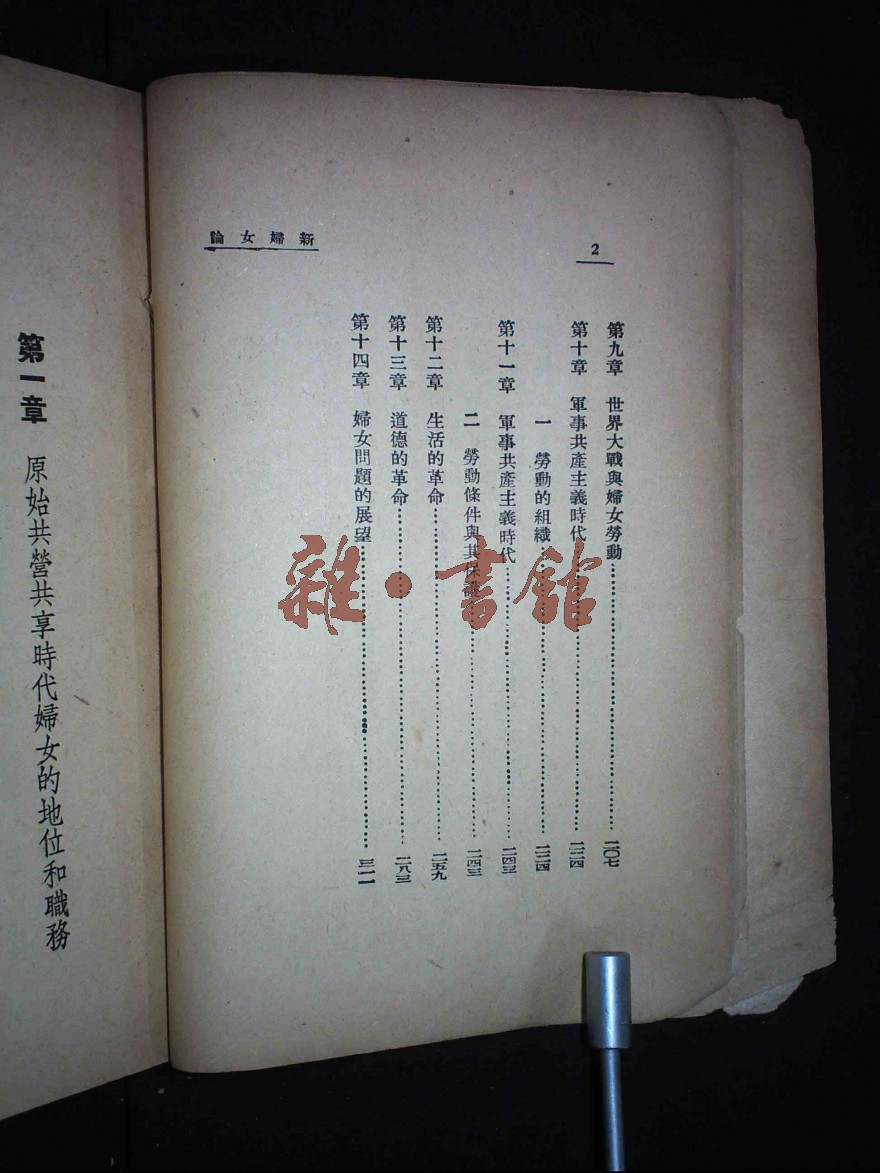 新婦女論
2
第九章 世界大戰與婦女勞動……二〇七
第十章 軍事共產主義時代……二二四
一 勞動的組織……二二四
第十一章 軍事共產主義時代……二四三
二 勞動條件與其保護……二四三
第十二章 生活的革命……二五九
第十三章 道德的革命……二八三
第十四章 婦女問題的展望……三一一
第一章 原始共營共享時代婦女的地位和職務
雜·書館